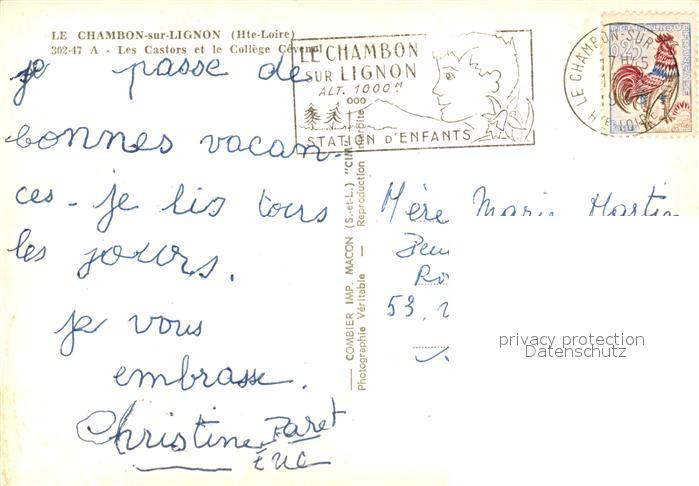 LE CHAMBON-sur-LIGNON (Hte-Loire)
302-47 A - Les Castors et le Collège Cévenol
LE CHAMBON
SUR LIGNON
ALT. 1000 m
STATION D'ENFANTS
LE CHAMBON-SUR-
Hte LOIRE
0,25
je passe de
bonnes vacan-
ces - je lis tous
les jours.
je vous
embrasse.
Christine Faret
COMBIER IMP. MACON (S.-et-L.) "CIM"
Photographie Véritable — Reproduction Interdite
Mère Marie Martin
53,
privacy protection
Datenschutz